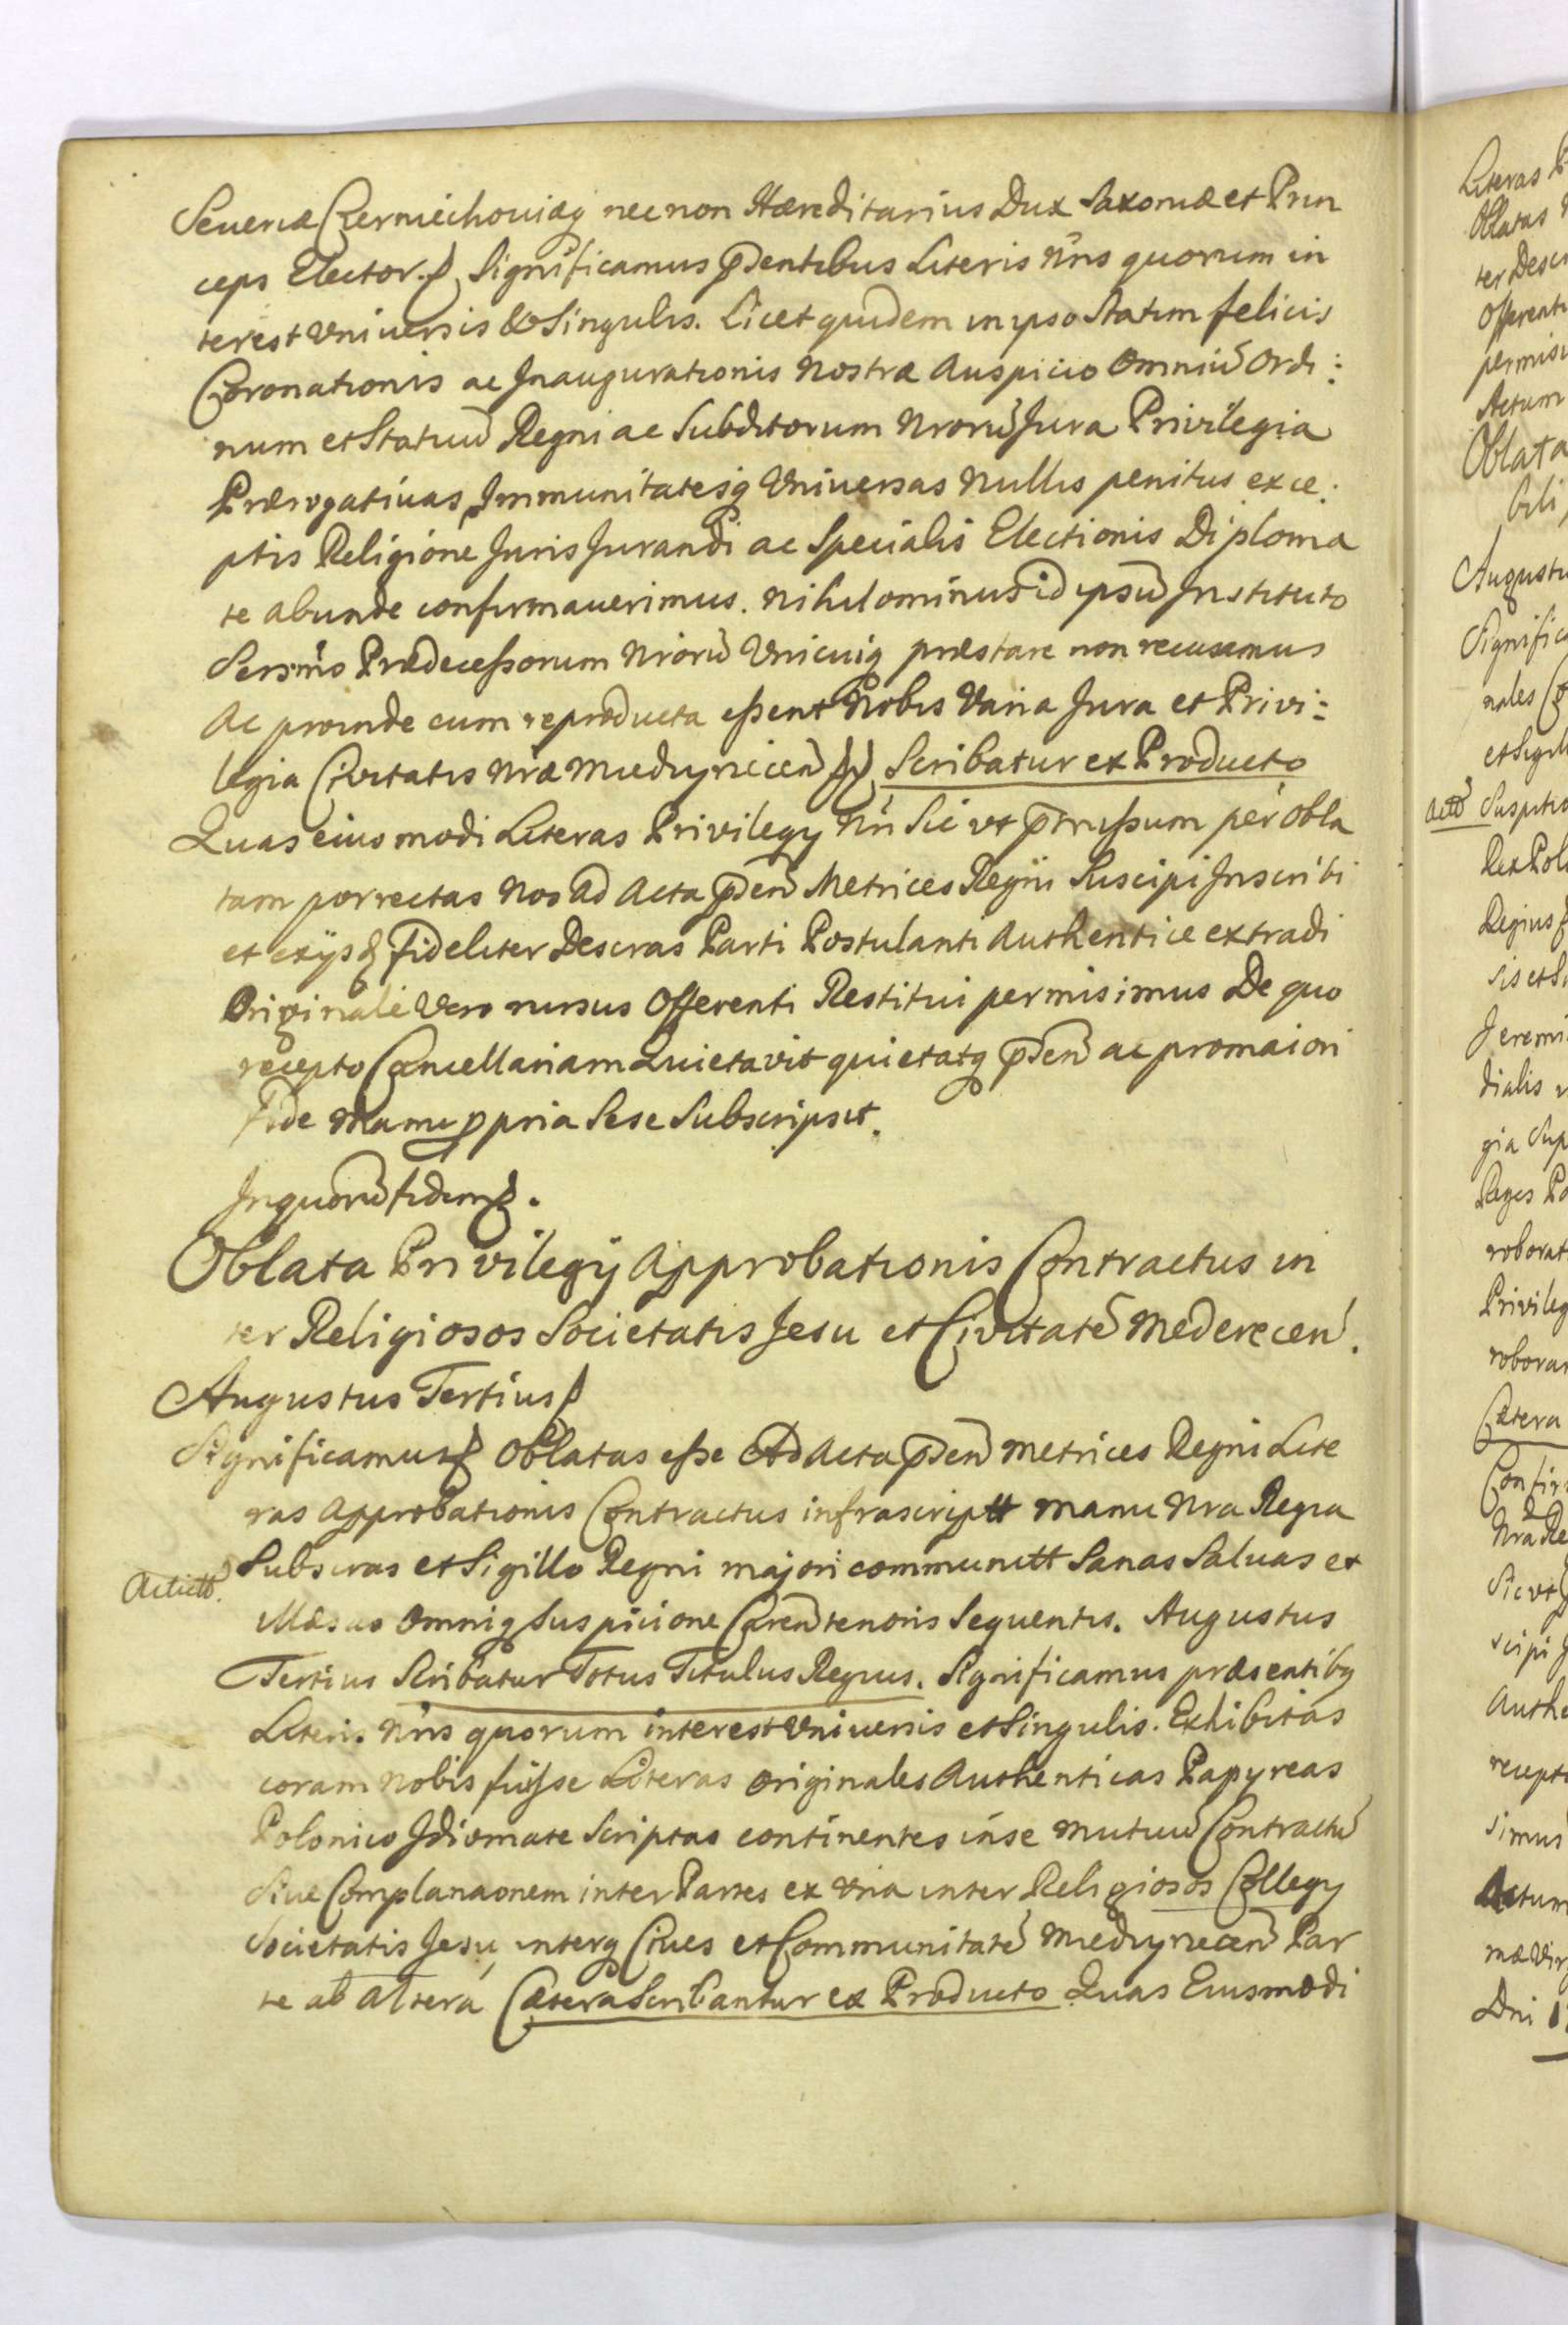 Seueriæ Czerniechouiæq nec non Hæreditarius Dux Saxoniæ et Prin
ceps Elector. Significamus p̄sentibus Literis Nr̃is quorum in
terest Vniuersis & Singulis. Licet quidem in ipso Statim felicis
Coronationis ac Inaugurationis Nostræ Auspicio Omniū Ordi:
num et Statuū Regni ac Subditorum Nrorū Jura Privilegia
Prærogatiuas, Immunitatesq Vniuersas Nullis penitus exce:
ptis Religione JurisJurandi ac Specialis Electionis Diploma
te abunde confirmauerimus. Nihilominus id ipsū Instituto
Sersm̃o Prædecessorum Nrorū Vnicuiq præstare non recusemus
Ac proinde cum reproducta essent Nobis Varia Jura et Privi:
legia Civitatis Nræ Miedzyrzecen̄ Scribatur ex Producto
Quas eiusmodi Literas Privilegy Nr̃i Sic vt p̄missum per Obla
tam porrectas Nos Ad Acta p̄sen̄ Metrices Regni Suscipi Inscribi
et ex ijsd fideliter Descras Parti Postulanti Authentice extradi
Originali Vero rursus Offerenti Restitui permisimus De quo
recepto Cancellariam Quietavit quietatq p̄sen̄ ac pro maiori
fide Manu ppria Sese Subscripsit.
In quorū fidem.
Oblata Privilegij Approbationis Contractus in
ter Religiosos Societatis Jesu et Civitatē Mederecen̄.
Augustus Tertius
Significamus Oblatas esse Ad Acta p̄sen̄ Metrices Regni Lite
ras Approbationis Contractus infrascriptt Manu Nra Regia
Subscras et Sigillo Regni majori communitt Sanas Saluas et
Illæsas Omniq Suspicione Caren̄ tenoris Sequentis. Augustus
Tertius Scribatur Totus Titulus Regius. Significamus præsentibq
Literis Nr̃is quorum interest Vniuersis et Singulis. Exhibitas
coram Nobis fuisse Literas Originales Authenticas Papyreas
Polonico Idiomate Scriptas continentes in se Mutuū Contractū
Siue Complanaonem inter Partes ex Vna inter Religiosos Collegy
Societatis Jesu, interq Ciues et Communitatē Miedzyrzecen̄ Par
te ab Altera Cætera Scribantur ex Producto Quas Eiusmodi
Literas
Oblatas
ter Descr
Offerenti
permisi
Actum
Oblata
Augustu
Signific
nales
et Sigill
Suspicio
Rex Pol
Regius
sis et Si
Jeremi
dialis
gia Sup
Reges Po
roborat
Privileg
roboras
Cætera
Confir
Nra Re
Sic vt
scipi
Authe
recepto
simus
Actum
Dni